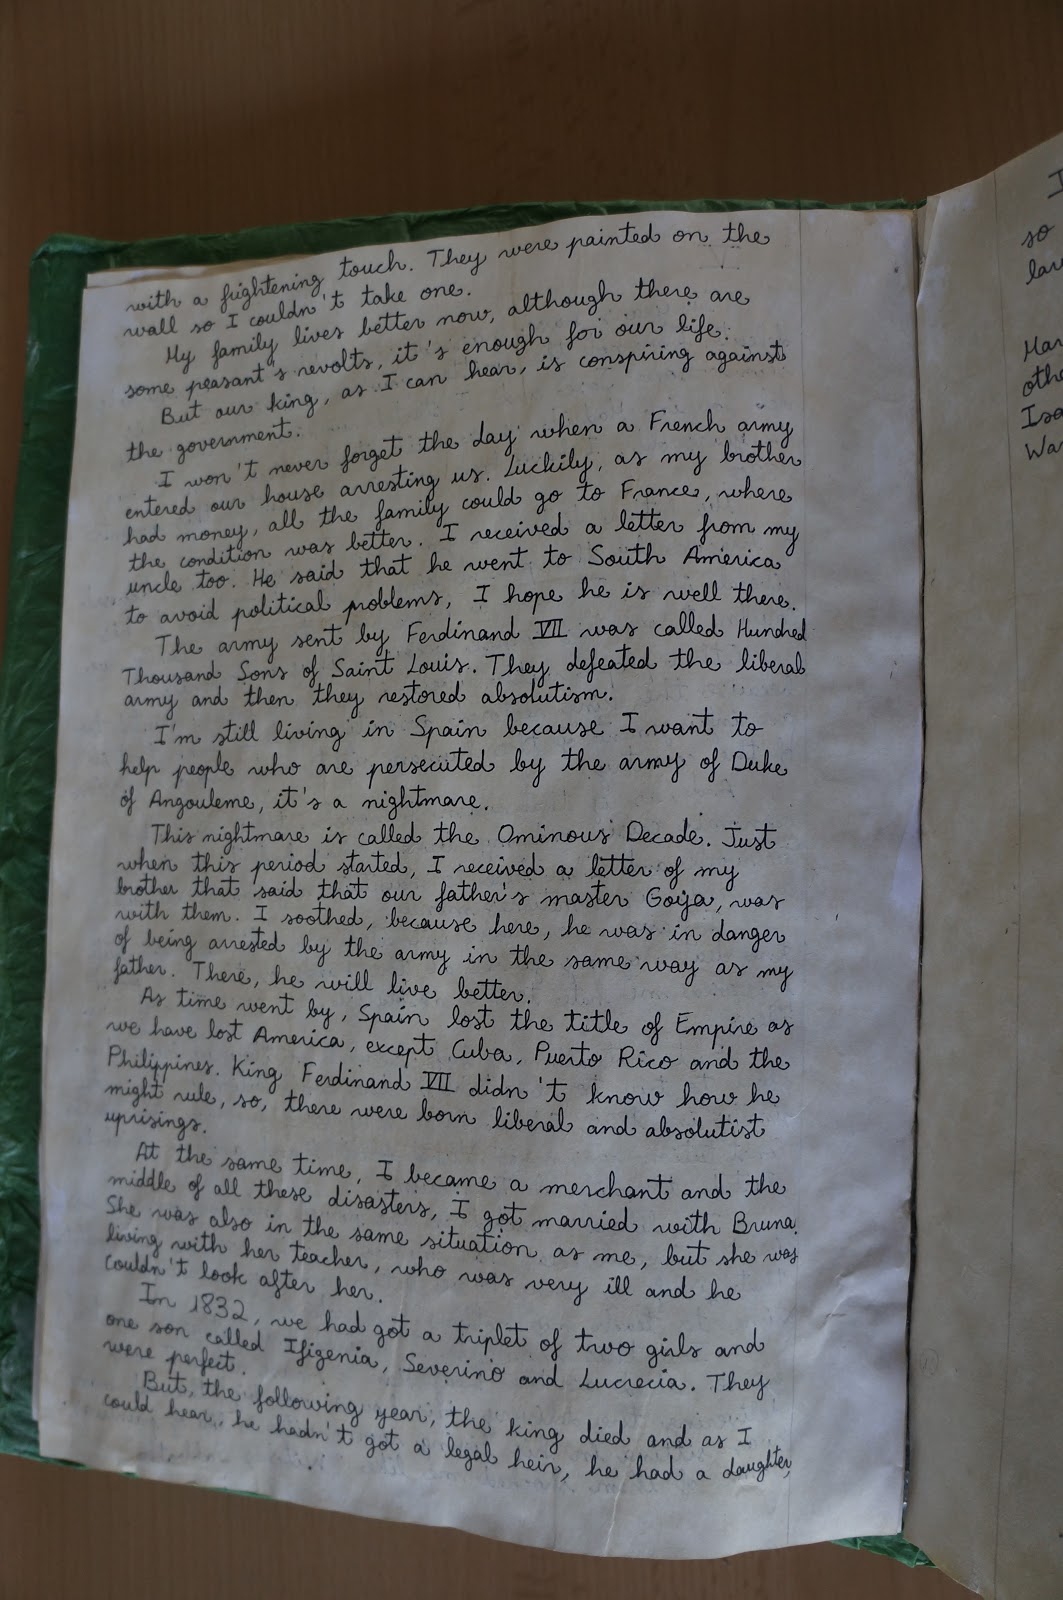 with a frightening touch. They were painted on the
wall so I couldn't take one.
My family lives better now, although there are
some peasant's revolts, it's enough for our life.
But our king, as I can hear, is conspiring against
the government.
I won't never forget the day when a French army
entered our house arresting us. Luckily, as my brother
had money, all the family could go to France, where
the condition was better. I received a letter from my
uncle too. He said that he went to South America
to avoid political problems, I hope he is well there.
The army sent by Ferdinand VII was called Hundred
Thousand Sons of Saint Louis. They defeated the liberal
army and then they restored absolutism.
I'm still living in Spain because I want to
help people who are persecuted by the army of Duke
of Angouleme, it's a nightmare.
This nightmare is called the Ominous Decade. Just
when this period started, I received a letter of my
brother that said that our father's master Goya, was
with them. I soothed, because here, he was in danger
of being arrested by the army in the same way as my
father. There, he will live better.
As time went by, Spain lost the title of Empire as
we have lost America, except Cuba, Puerto Rico and the
Philippines. King Ferdinand VII didn't know how he
might rule, so, there were born liberal and absolutist
uprisings.
At the same time, I became a merchant and the
middle of all these disasters, I got married with Bruna.
She was also in the same situation as me, but she was
living with her teacher, who was very ill and he
couldn't look after her.
In 1832, we had got a triplet of two girls and
one son called Ifigenia, Severino and Lucrecia. They
were perfect.
But, the following year, the king died and as I
could hear, he hadn't got a legal heir, he had a daughter,
so